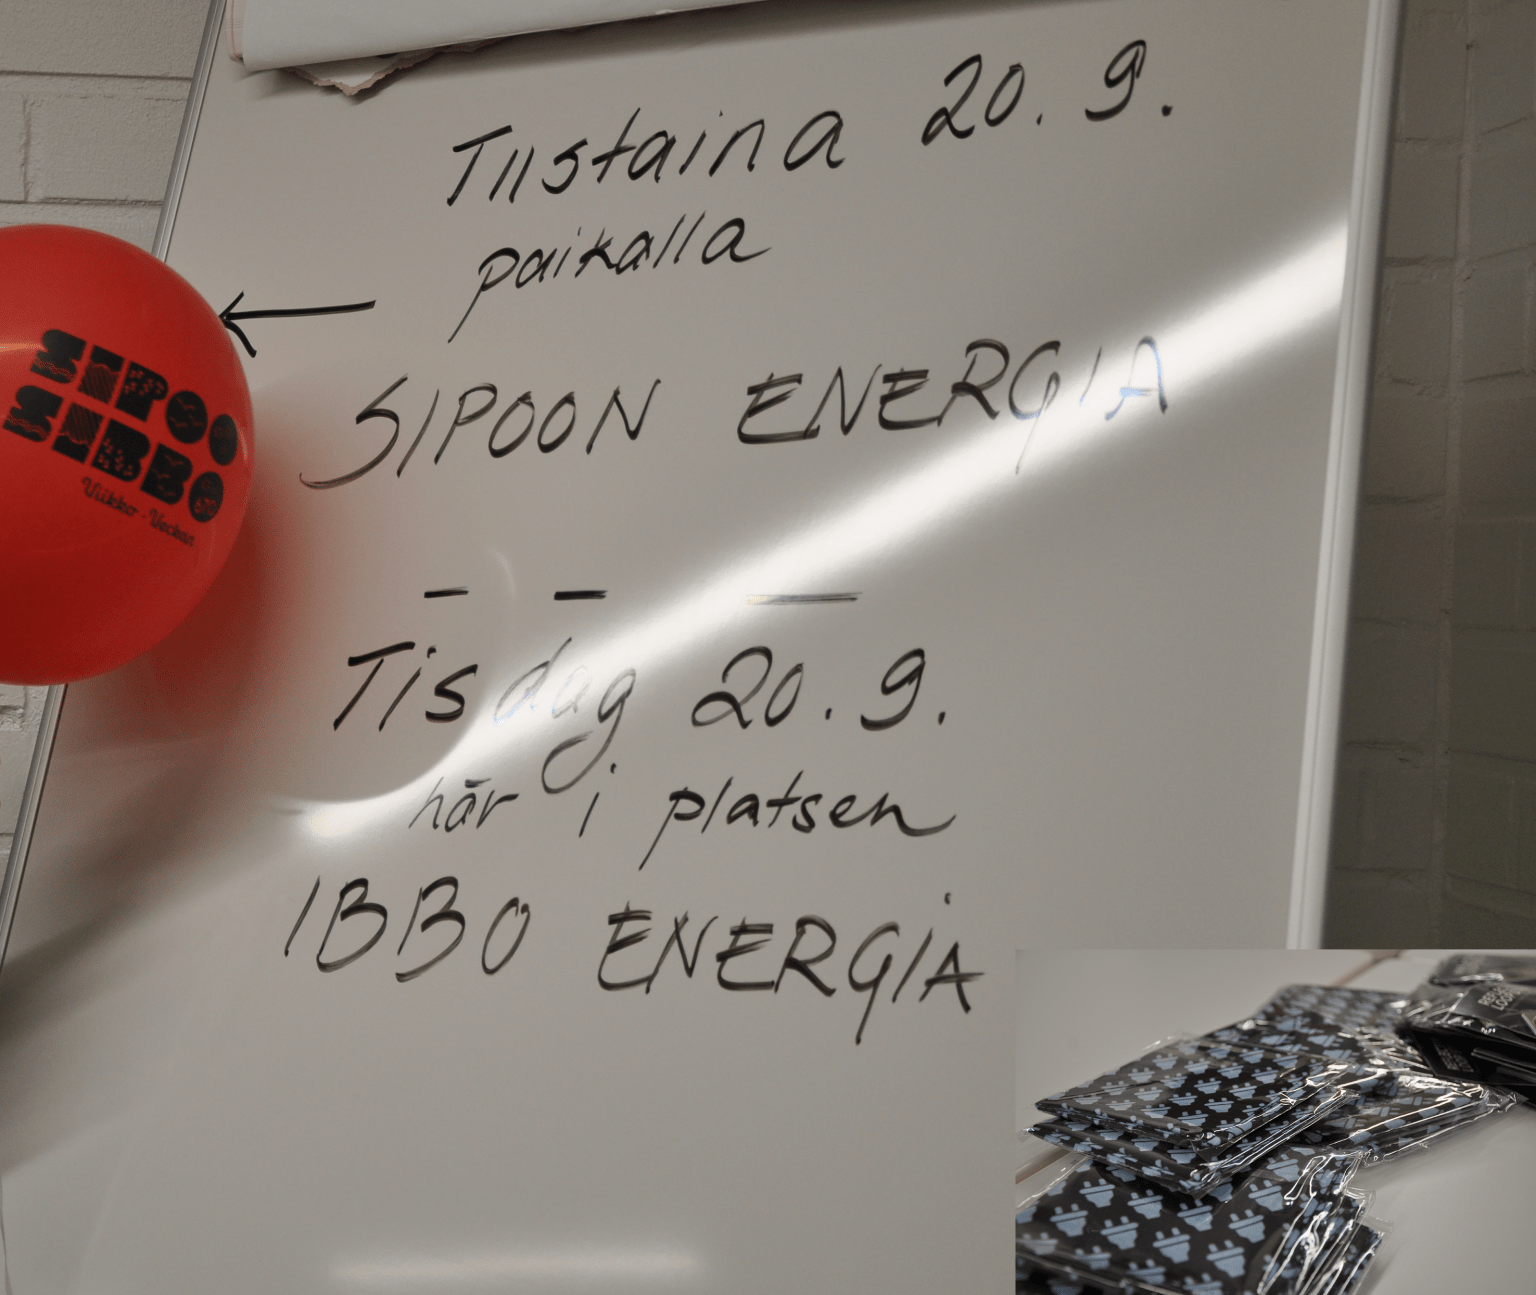 Tiistaina 20.9.
paikalla
SIPOON ENERGIA
— — —
Tisdag 20.9.
här i platsen
IBBO ENERGIA
SIPOO
SIBBO
Viikko - Veckan